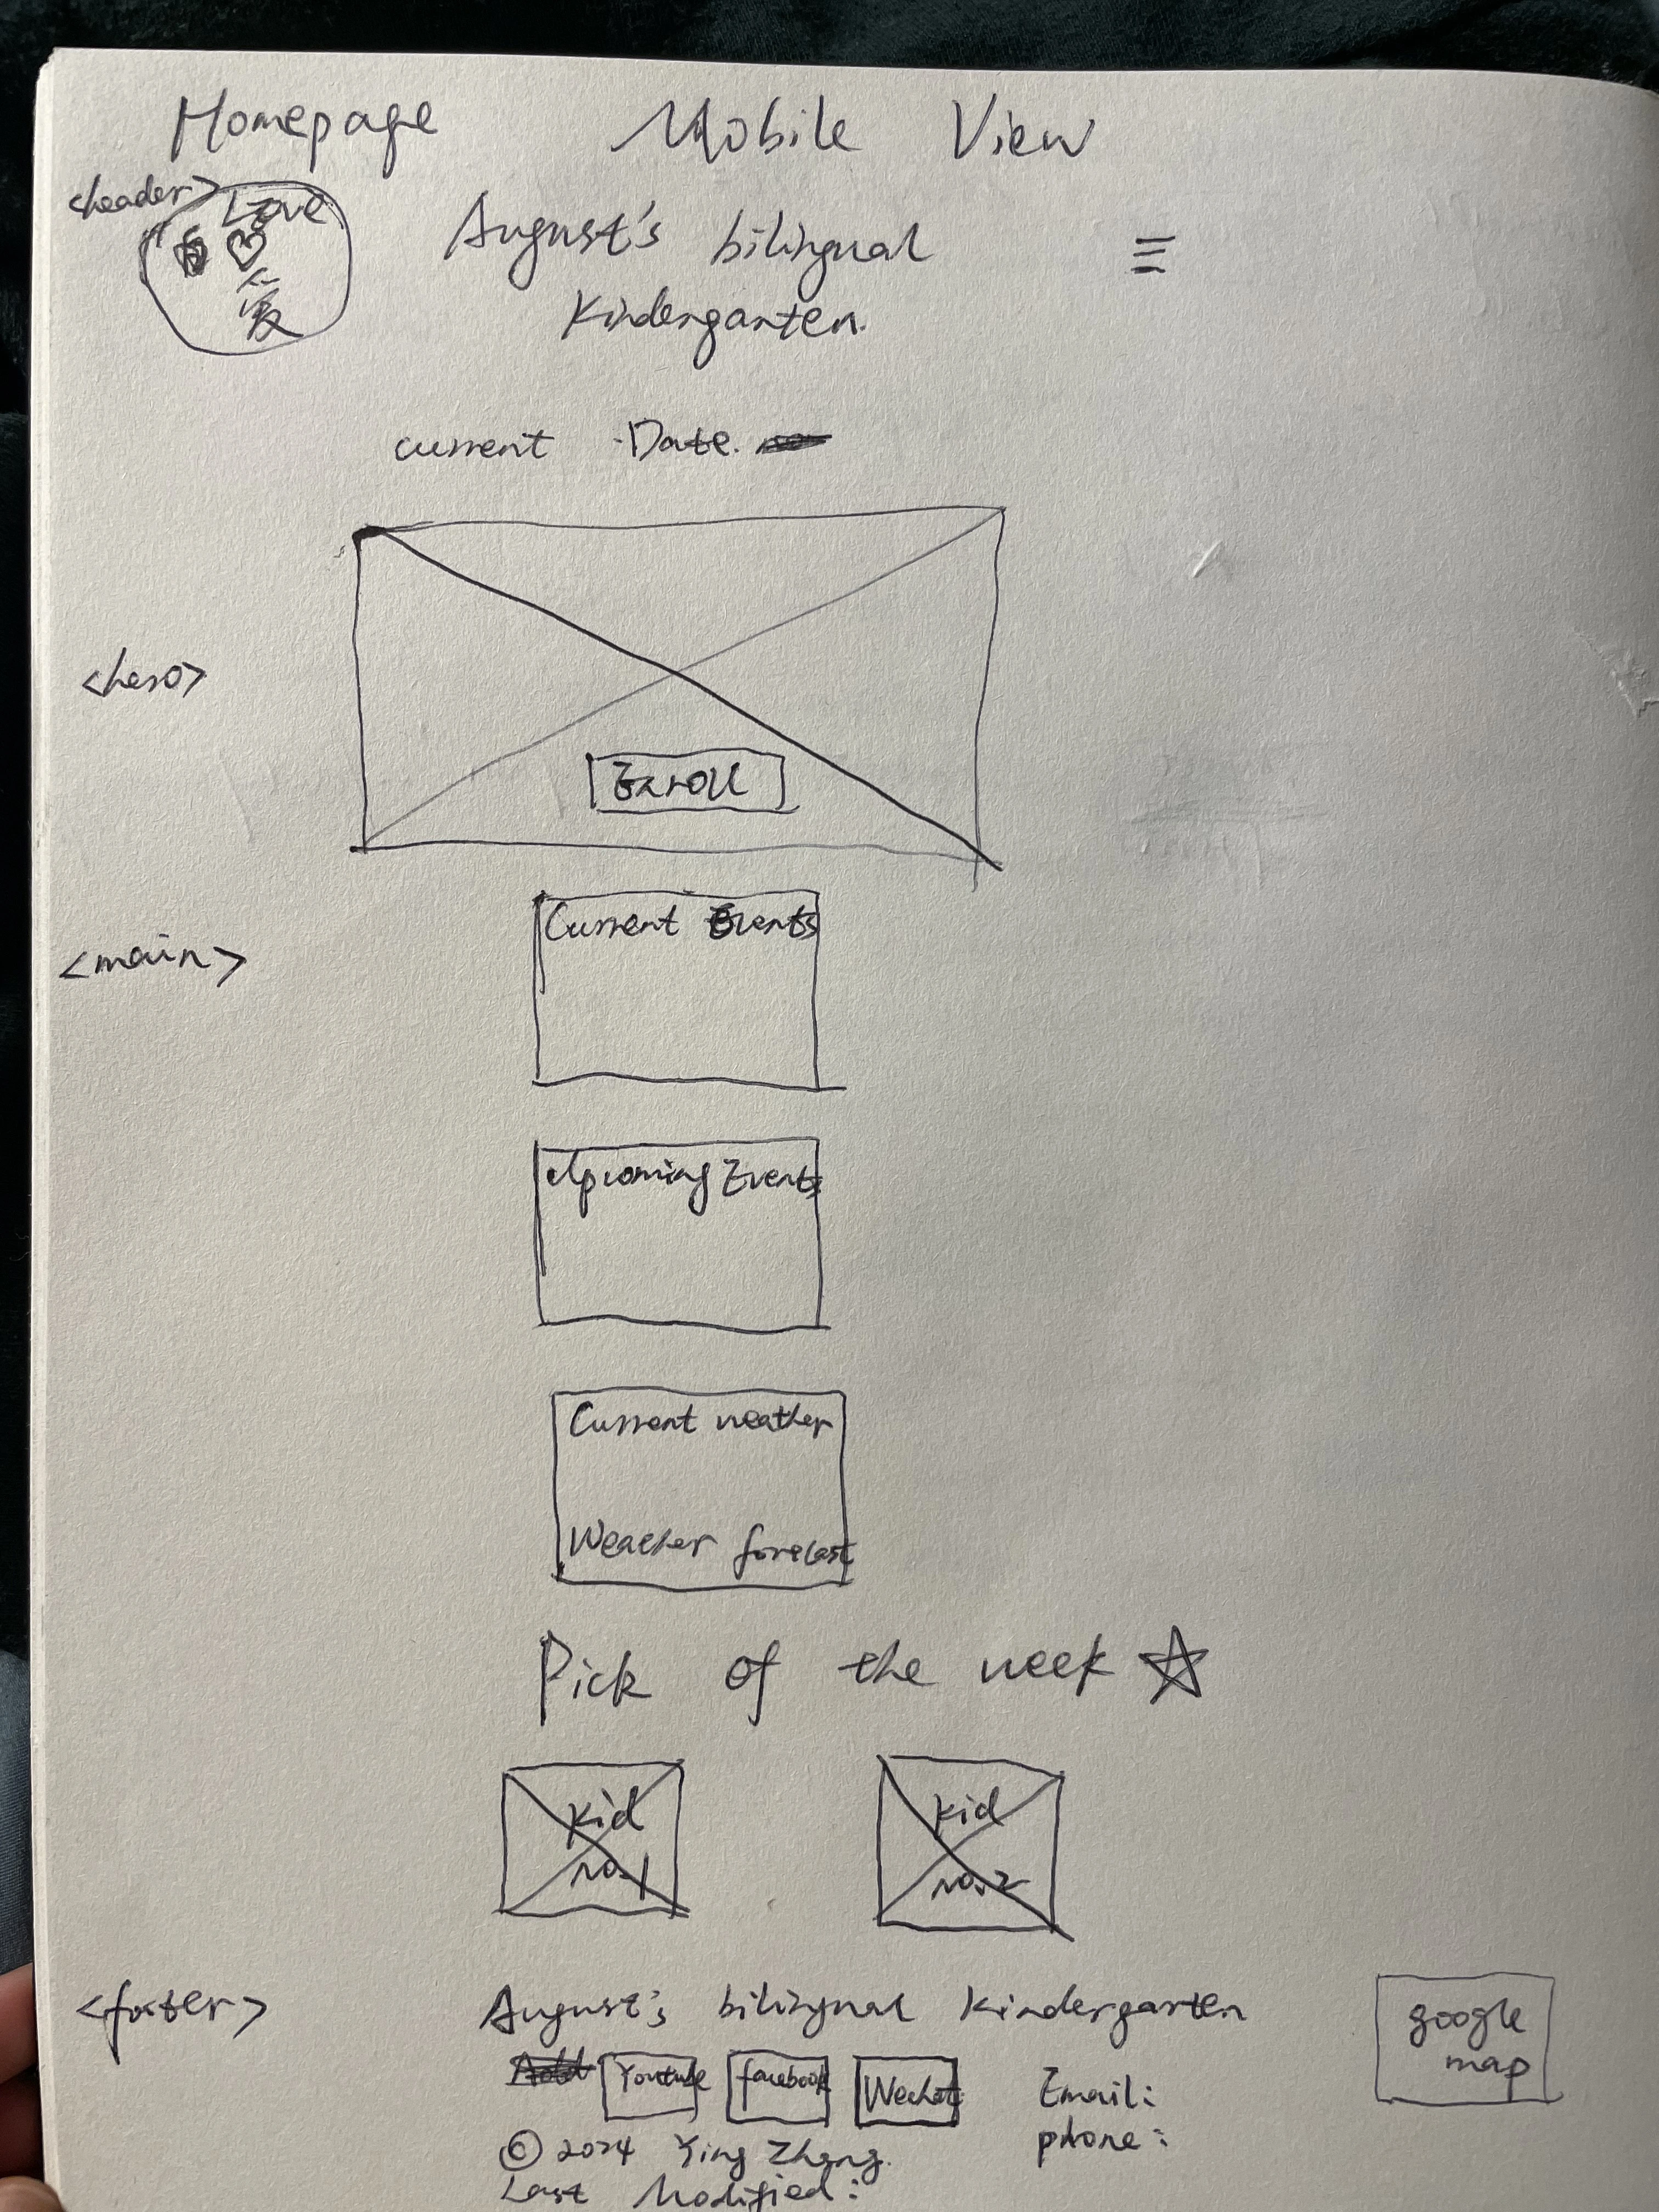 Homepage Mobile View
<header>
Love
爱
August's bilingual
Kindergarten.
current Date.
<hero>
Enroll
<main>
Current Events
Upcoming Events
Current weather
Weather forecast
Pick of the week
Kid
no.1
Kid
no.2
<footer>
August's bilingual Kindergarten
Youtube
facebook
Wechat
Email:
phone:
google
map
© 2024 Ying Zhang.
Last Modified: